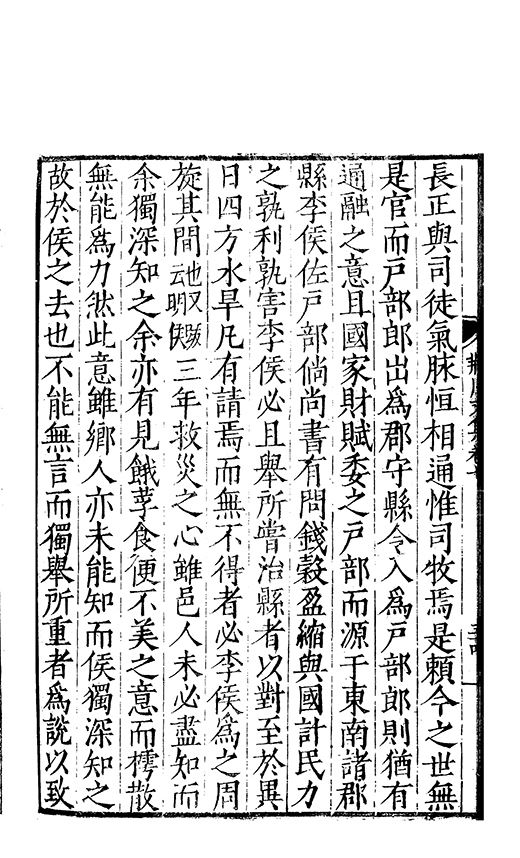 長正與司徒氣脉恒相通惟司牧焉是賴今之世無
是官而戸部郎出爲郡守縣令入爲戸部郎則猶有
通融之意且國家財賦委之戸部而源于東南諸郡
縣李侯佐戸部倘尚書有問錢穀盈縮與國計民力
之孰利孰害李侯必且舉所嘗治縣者以對至於異
日四方水旱凡有請焉而無不得者必李侯爲之周
旋其間三年救災之心雖邑人未必盡知而
余獨深知之余亦有見餓莩食便不美之意而樗散
無能爲力然此意雖鄉人亦未能知而侯獨深知之
故於侯之去也不能無言而獨舉所重者爲說以致